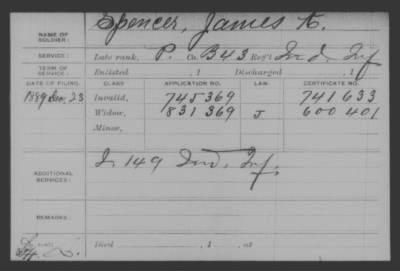 NAME OF SOLDIER: Spencer, James
SERVICE: Late rank, P. Co. B 43 Reg't Ind. Inf
TERM OF SERVICE: Enlisted , 1 Discharged , 1
DATE OF FILING. CLASS. APPLICATION NO. LAW. CERTIFICATE NO.
1889 23 Invalid, 745369 741633
Widow, 831369 J 600401
Minor,
ADDITIONAL SERVICES: 149 Ind. Inf.
REMARKS:
Died , 1 , at